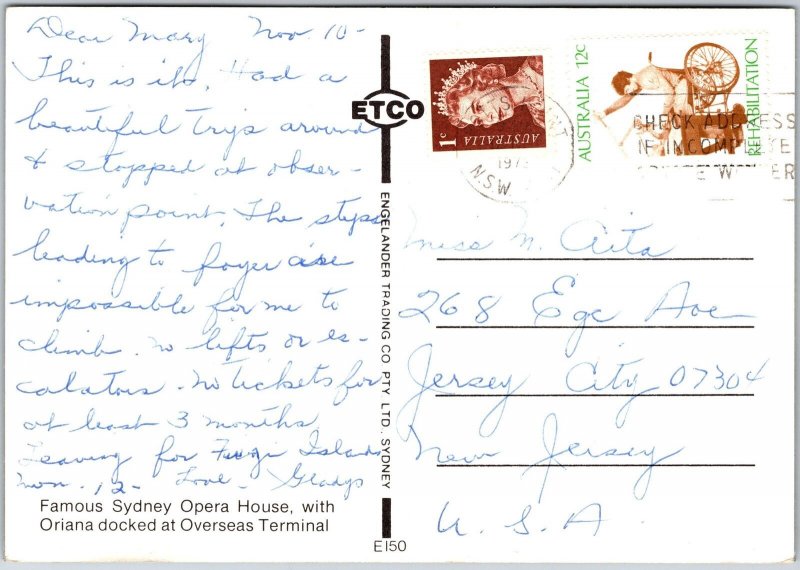 Dear Mary Nov 10-
This is it. Had a
beautiful trip around
& stopped at obser-
vation point. The steps
leading to foyer are
impossible for me to
climb. No lifts or es-
calators. No tickets for
at least 3 months
Leaving for Fugi Islands
Mon. 12- Love Gladys
Famous Sydney Opera House, with
Oriana docked at Overseas Terminal
ETCO
ENGELANDER TRADING CO. PTY. LTD., SYDNEY
E150
1c AUSTRALIA
AUSTRALIA 12c
REHABILITATION
197
N.S.W
CHECK ADDRESS
IF INCOMPLETE
Miss M. Aita
268 Ege Ave
Jersey City 07304
New Jersey
U. S. A.